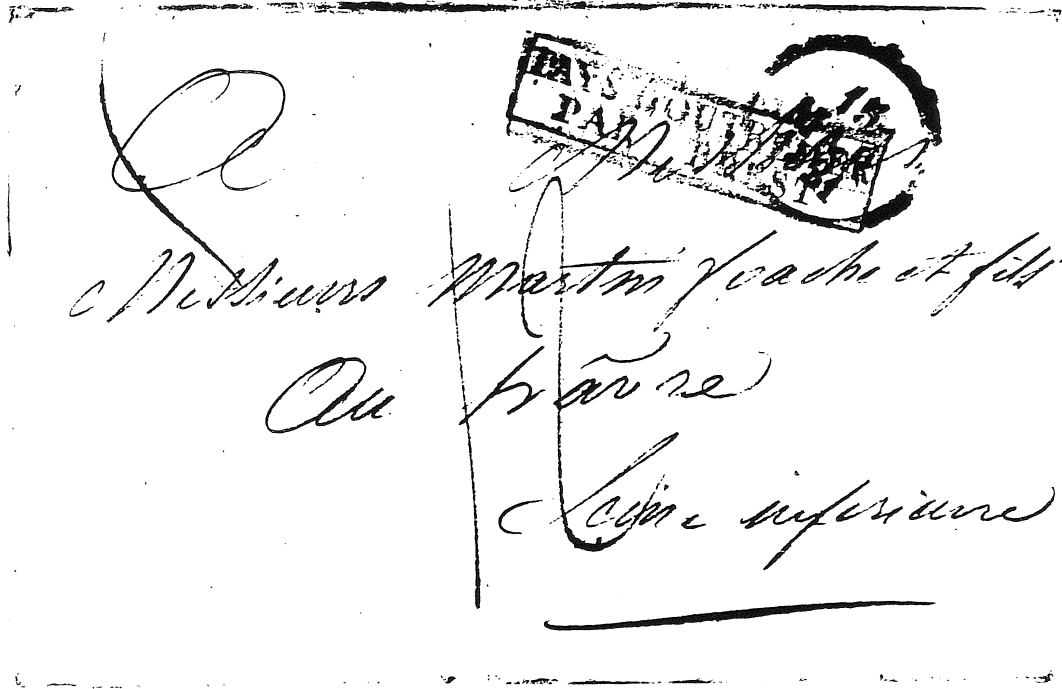 A Messieurs
PAYS D'OUTREMER
PAR BREST
15
Messieurs Martin foache et fils
Au hâvre
Seine inferieure